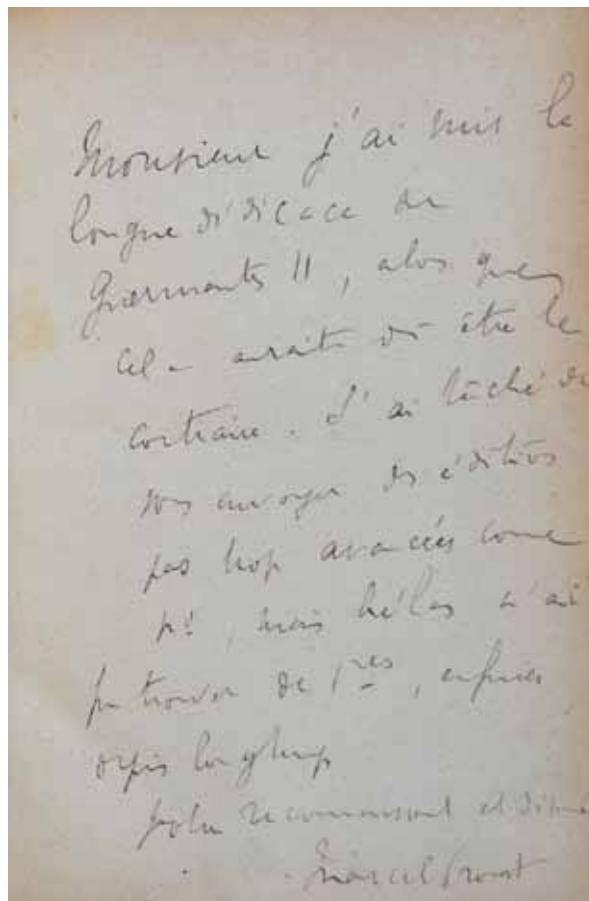 Monsieur j'ai mis la
longue dédicace au
Guermantes II, alors que
cela aurait dû être le
contraire. J'ai tâché de
vous envoyer des éditions
pas trop avancées comme
n°, mais hélas n'ai
pu trouver de 1res, épuisées
depuis longtemps
Votre reconnaissant et dévoué
Marcel Proust